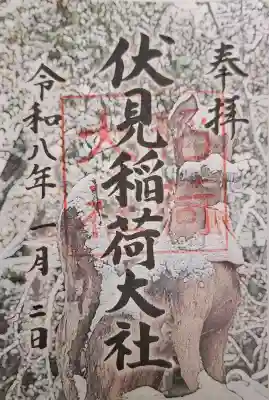 奉拝
伏見稲荷大社
令和八年 一月 二日